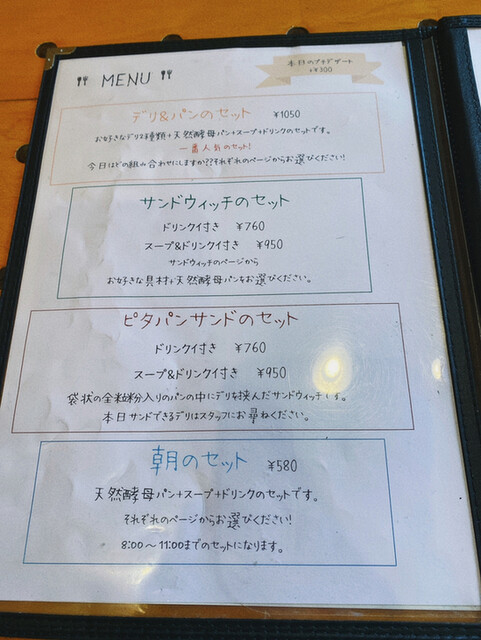 MENU
本日のプチデザート
+¥300
デリ&パンのセット ¥1050
お好きなデリ2種類+天然酵母パン+スープ+ドリンクのセットです。
一番人気のセット!
今日はどの組み合わせにしますか??それぞれのページからお選びください!
サンドウィッチのセット
ドリンク付き ¥760
スープ&ドリンク付き ¥950
サンドウィッチのページから
お好きな具材+天然酵母パンをお選びください。
ピタパンサンドのセット
ドリンク付き ¥760
スープ&ドリンク付き ¥950
袋状の全粒粉入りのパンの中にデリを挟んだサンドウィッチです。
本日サンドできるデリはスタッフにお尋ねください。
朝のセット ¥580
天然酵母パン+スープ+ドリンクのセットです。
それぞれのページからお選びください!
8:00〜11:00までのセットになります。